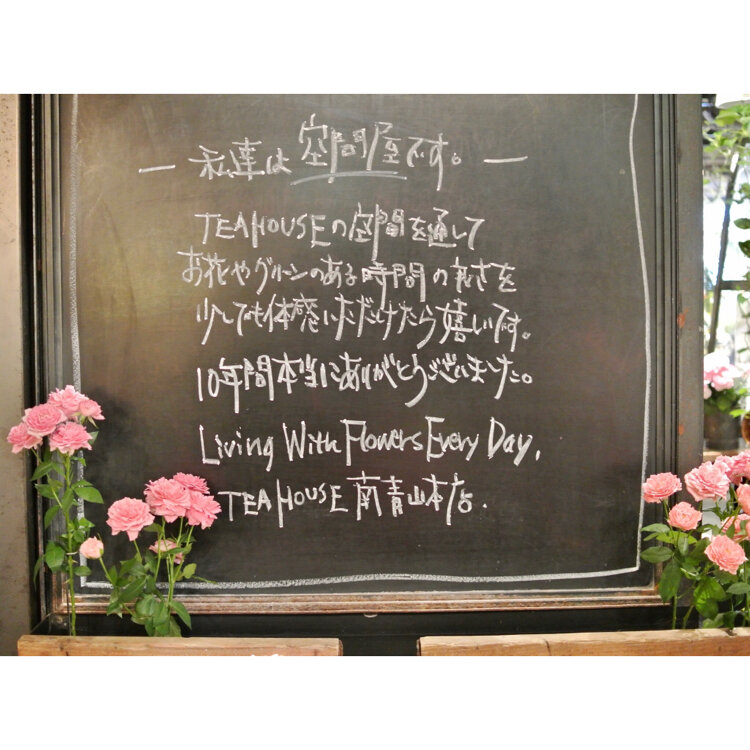 — 私達は空間屋です。—
TEAHOUSEの空間を通して
お花やグリーンのある時間の良さを
少しでも体感いただけたら嬉しいです。
10年間本当にありがとうございました。
Living With Flowers Every Day,
TEAHOUSE 南青山本店.